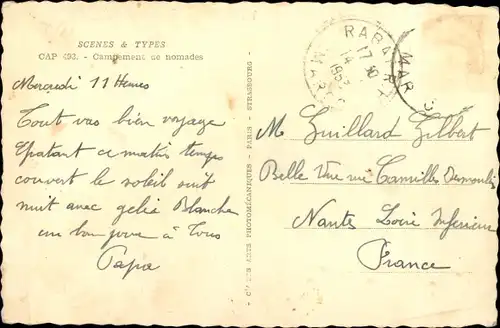 SCENES & TYPES
CAP 493. - Campement de nomades
Mercredi 11 Heures
Tout vas bien voyage
Epatant ce matin temps
couvert le soleil suit
nuit avec gelée Blanche
un bon jour à Tous
Papa
Cie DES ARTS PHOTOMÉCANIQUES - PARIS - STRASBOURG -
RABA
17 10
MAR
M Guillard Gilbert
Belle Vue rue Camilles Desmouli
Nantes Loire Inferieur
France